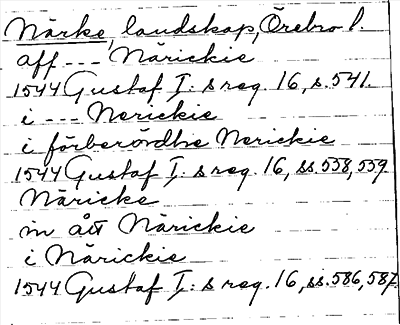 Närke, landskap, Örebro l.
aff --- Närickie
1544 Gustaf I:s reg. 16, s. 541.
i --- Nerickie
i förberördhe Nerickie
1544 Gustaf I:s reg. 16, ss. 558, 559
Näricke
in ått Närickie
i Närickie
1544 Gustaf I:s reg. 16, ss. 586, 587.